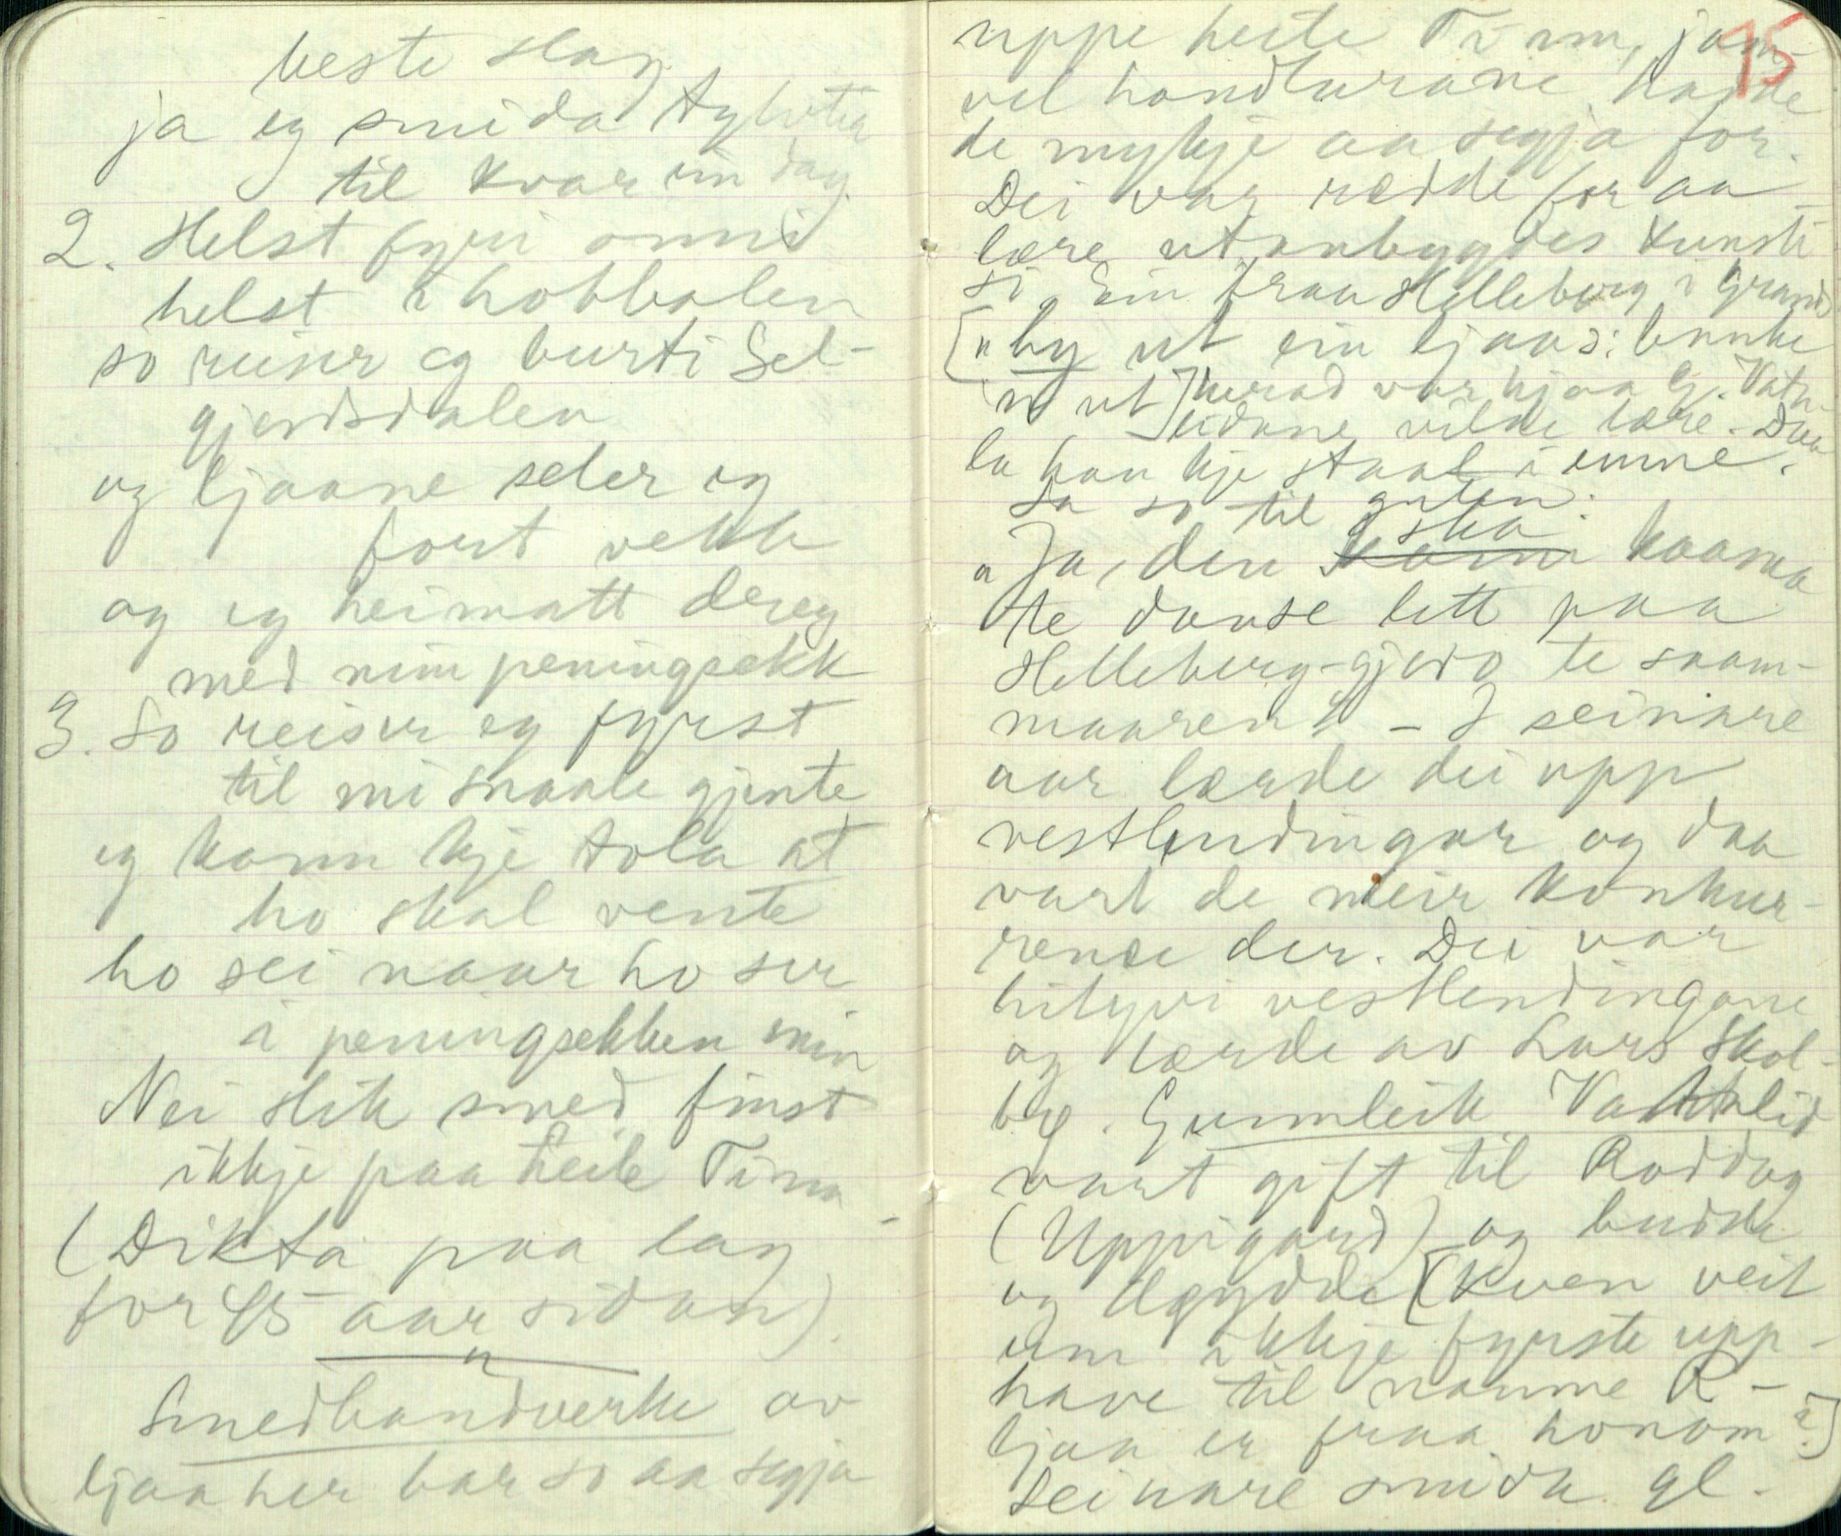 beste slag
ja eg smida tylvtir
til kvar ein dag.
2. Helst fyri onni
helst i hobbalen
so reiser eg burti Sel-
gjordsdalen
og ljaane seler eg
fort vekk
og eg heimatt dreg
med min peningsekk
3. So reiser eg fyrst
til mi snaale gjente
eg kann kje tola at
ho skal vente
ho sei naar ho ser
i peningsekken min
Nei slik smed finst
ikkje paa heile Tinn
(Dikta paa lag
for 45 aar sidan).
Smedhandverke av
ljaa her bar so aa segja
uppe heile Tinn, jam-
vel handlarane hadde
de mykje aa segja for.
Dei var rædde for aa
lære utanbygdes kunsti
si. Ein fraa Helleberg i Grans-
["hy ut ein ljaa": banke
n ut] herad var hjaa G. Vatn-
lidane vilde lære. Daa
la han kje staal i emne.
Sa so til guten:
"Ja, den ska kaama
te danse lett paa
Helleberg-gjero te saam-
maaren". – I seinare
aar lærde dei upp
vestlendingar og daa
vart de meir konkur-
ranse der. Dei var
hityvi vestlendingane
og lærde av Lars Skol-
be. Gunnleik Vatnlid
vart gift til Roddog
(Uppigard) og budde
og døydde [Kven veit
um ikkje fyrste upp-
have til namne R-
ljaa er fraa honom?]
Seinare smida gl.
15